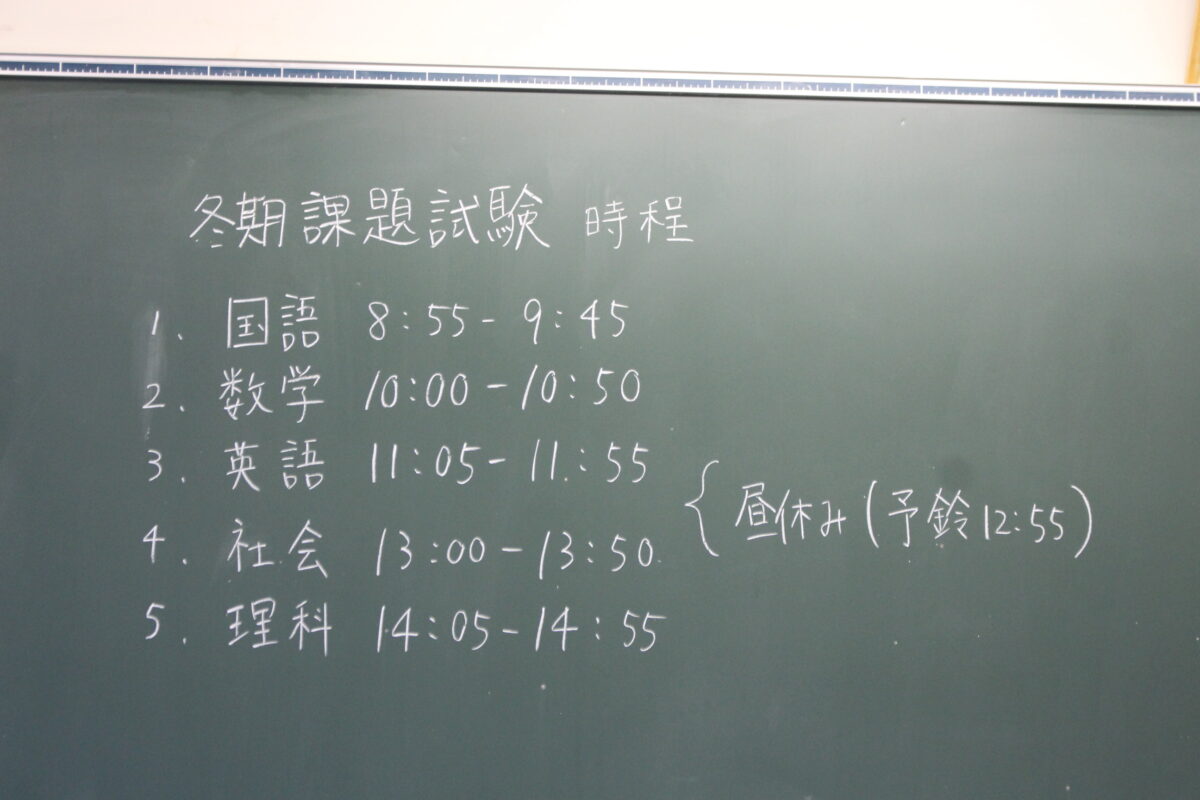 冬期課題試験 時程
1. 国語 8:55-9:45
2. 数学 10:00-10:50
3. 英語 11:05-11:55
昼休み(予鈴12:55)
4. 社会 13:00-13:50
5. 理科 14:05-14:55